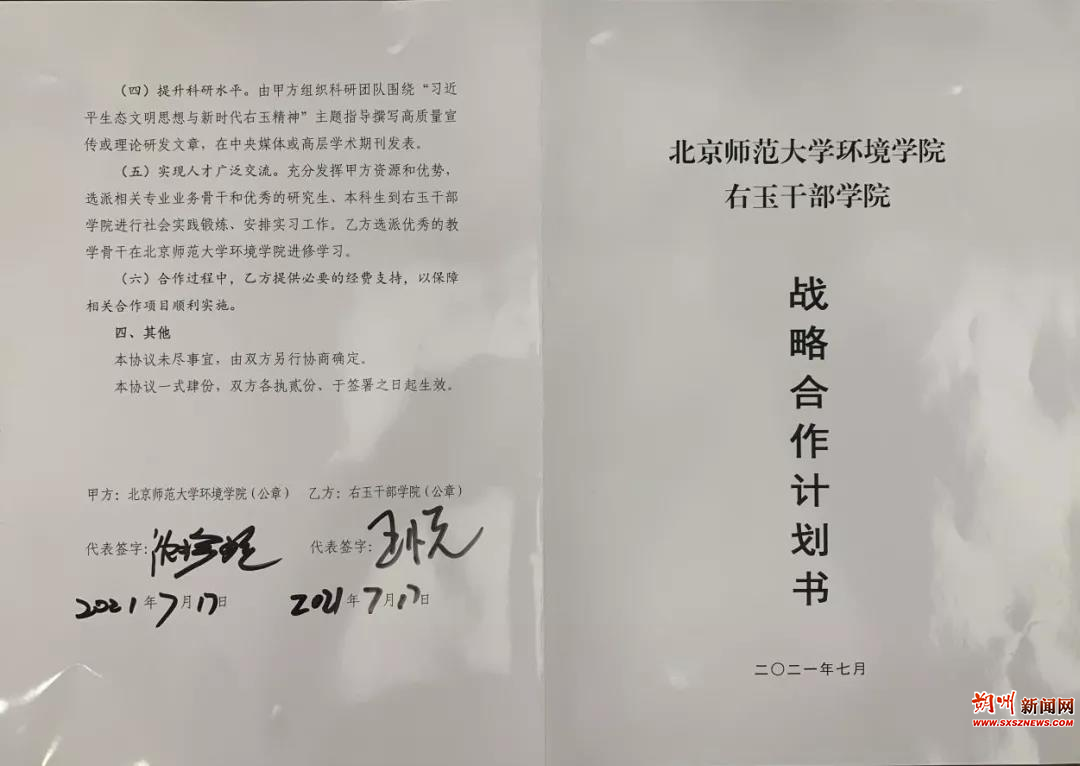 （四）提升科研水平。由甲方组织科研团队围绕“习近
平生态文明思想与新时代右玉精神”主题指导撰写高质量宣
传或理论研发文章，在中央媒体或高层学术期刊发表。
（五）实现人才广泛交流。充分发挥甲方资源和优势，
选派相关专业业务骨干和优秀的研究生、本科生到右玉干部
学院进行社会实践锻炼、安排实习工作。乙方选派优秀的教
学骨干在北京师范大学环境学院进修学习。
（六）合作过程中，乙方提供必要的经费支持，以保障
相关合作项目顺利实施。
四、其他
本协议未尽事宜，由双方另行协商确定。
本协议一式肆份，双方各执贰份、于签署之日起生效。
甲方：北京师范大学环境学院（公章） 乙方：右玉干部学院（公章）
代表签字： 代表签字：
2021年7月17日 2021年7月17日
北京师范大学环境学院
右玉干部学院
战略合作计划书
二〇二一年七月
朔州新闻网
WWW.SXSZNEWS.COM